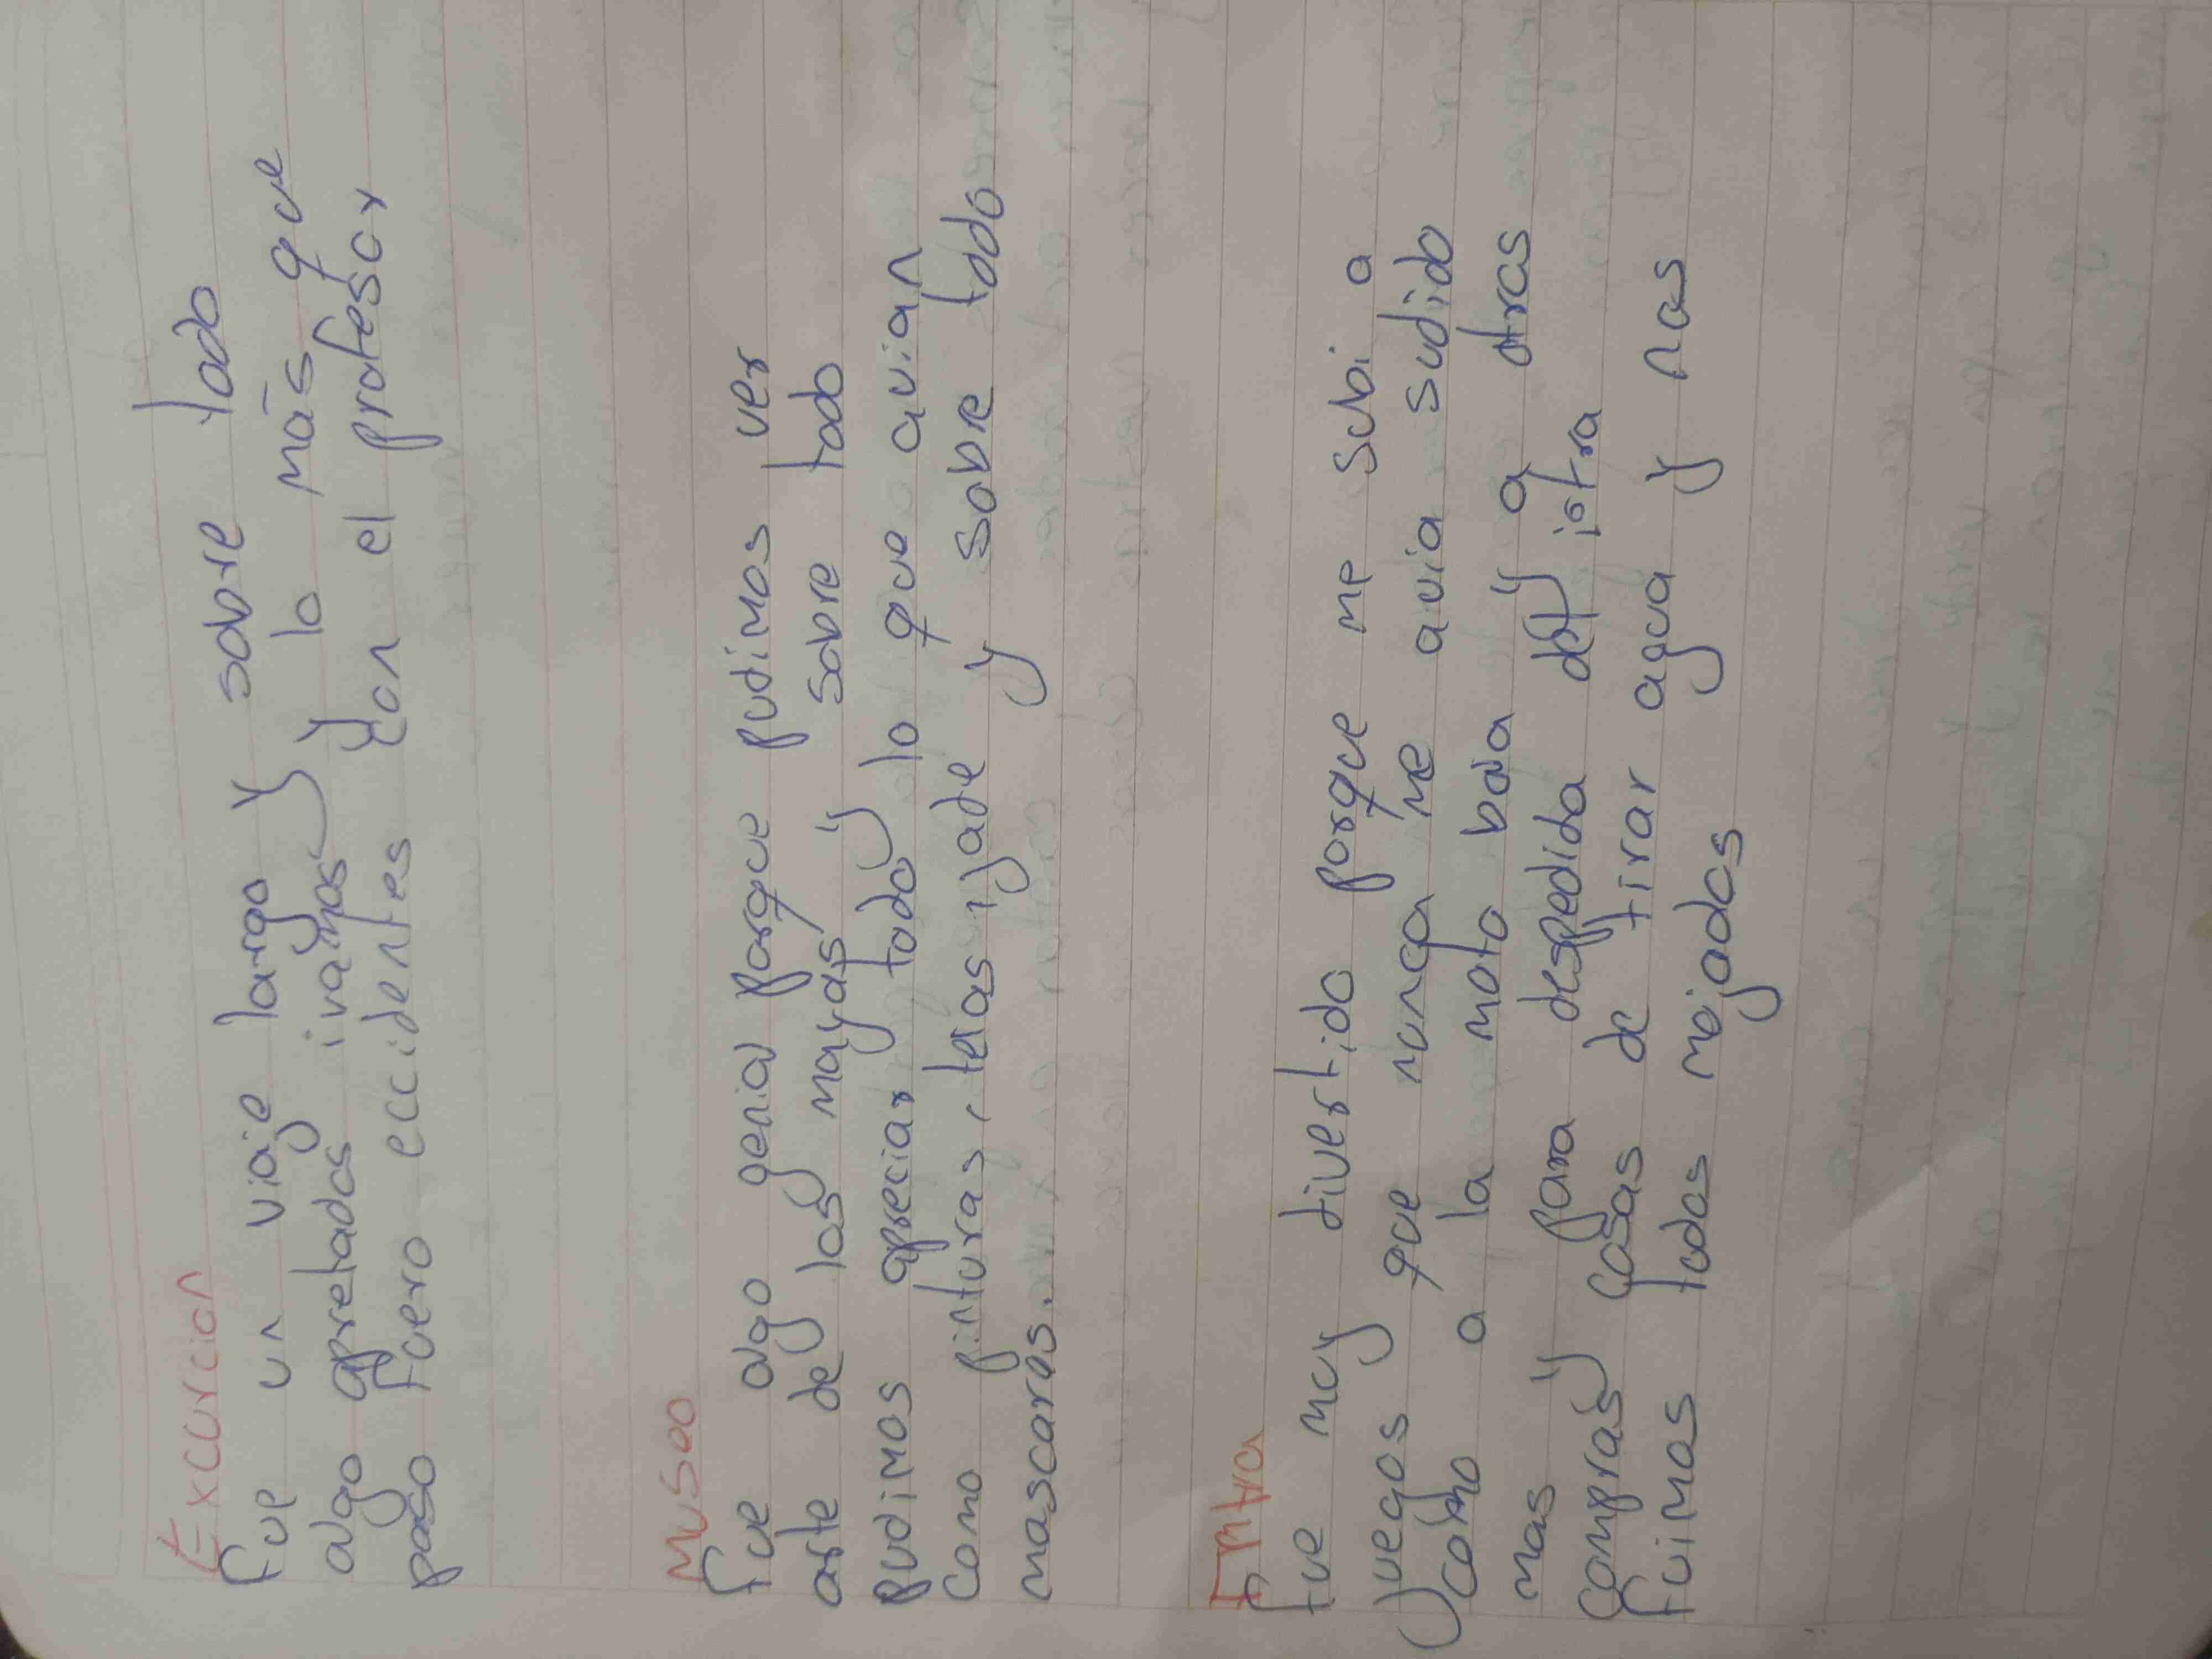 Excurcion
fue un viaje largo y sobre todo
algo apretados ivamos y lo más que
paso fuero eccidentes con el profesor
Musoo
fue algo genial porque pudimos ver
arte de los mayas y sobre todo
pudimos apreciar todo lo que avian
como pinturas, telas, jade y sobre todo
mascaras.
Imtra
fue muy divertido porque me subi a
juegos que nunca me avia sudido
como a la moto boa y a otras
mas y para despedida del istra
compras y cosas de tirar agua y nas
fuimos todos mojados